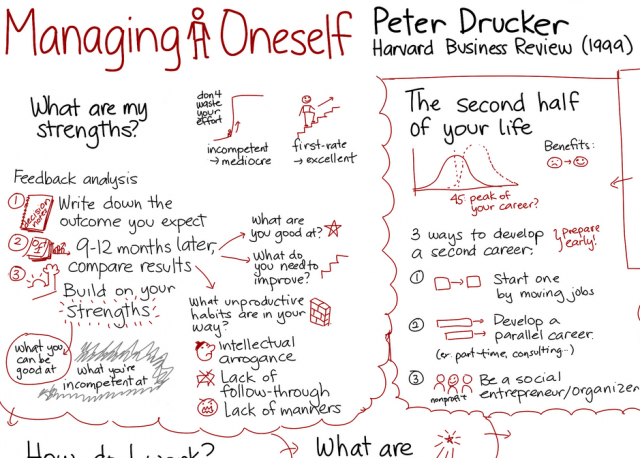 Managing Oneself
Peter Drucker
Harvard Business Review (1999)
What are my
strengths?
don't
waste
your
effort
incompetent
→ mediocre
first-rate
→ excellent
Feedback analysis
1 Write down the
outcome you expect
Decision
notes
2 9-12 months later,
compare results
3 Build on your
strengths
What are
you good at?
What do
you need to
improve?
What unproductive
habits are in your
way?
Intellectual
arrogance
Lack of
follow-through
Lack of manners
What you
can be
good at
What you're
incompetent at
The second half
of your life
Benefits:
45: peak of
your career?
3 ways to develop
a second career:
Prepare
early!
1 Start one
by moving jobs
2 Develop a
parallel career.
(ex. part-time, consulting-)
3 Be a social
entrepreneur/organizer
nonprofit
How do I work?
What are